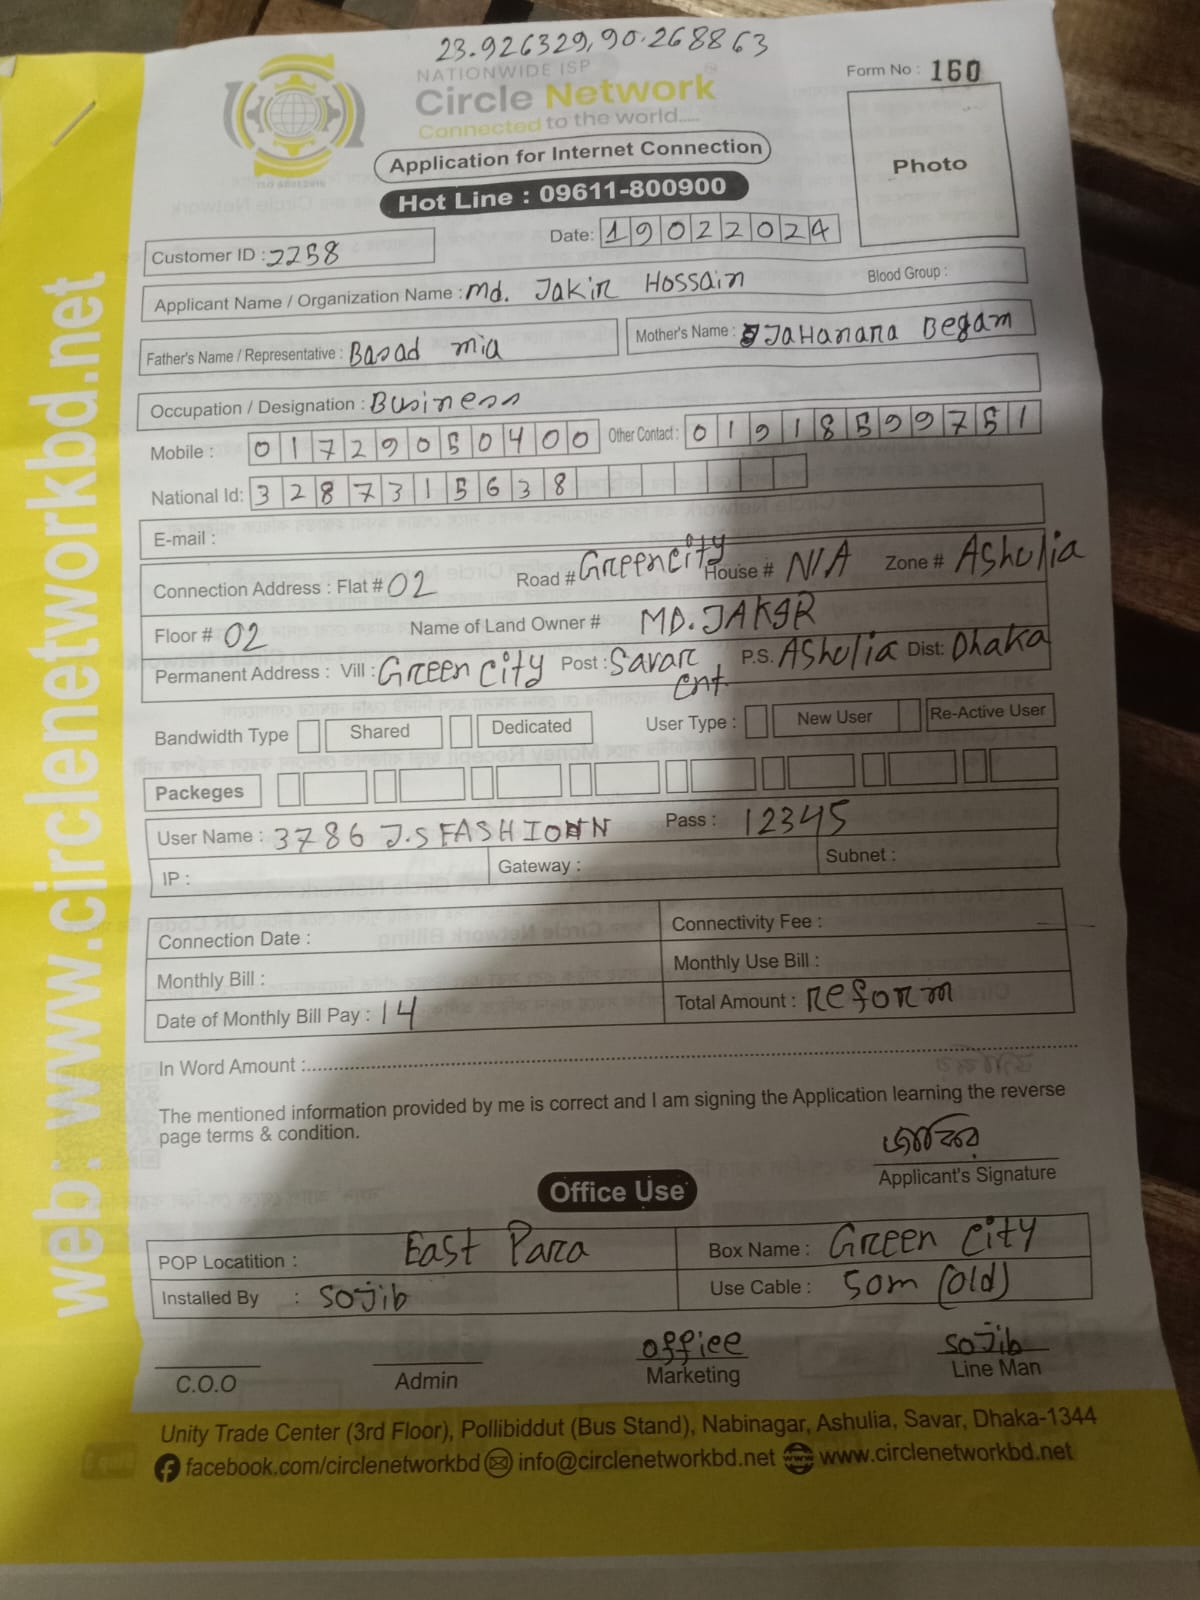 23.926329,90.268863
NATIONWIDE ISP
Circle Network
Connected to the world.....
ISO 9001:2015
Form No : 160
Photo
Application for Internet Connection
Hot Line : 09611-800900
Date: 19022024
Customer ID : 2258
Applicant Name / Organization Name : Md. Jakir Hossain Blood Group :
Father's Name / Representative : Basad mia Mother's Name : JaHanara Begam
Occupation / Designation : Business
Mobile : 01729050400 Other Contact : 01918599751
National Id: 3287315638
E-mail :
Connection Address : Flat # 02 Road # Greencity House # N/A Zone # Ashulia
Floor # 02 Name of Land Owner # MD. JAKIR
Permanent Address : Vill : Green city Post : Savar Cnt. P.S. Ashulia Dist: Dhaka
Bandwidth Type Shared Dedicated User Type : New User Re-Active User
Packeges
User Name : 3786 J.S FASHION Pass : 12345
IP : Gateway : Subnet :
Connection Date : Connectivity Fee :
Monthly Bill : Monthly Use Bill :
Date of Monthly Bill Pay : 14 Total Amount : Reform
In Word Amount :
The mentioned information provided by me is correct and I am signing the Application learning the reverse
page terms & condition.
জাকির
Applicant's Signature
Office Use
POP Locatition : East Para Box Name : Green City
Installed By : Sojib Use Cable : 50m (old)
office Sojib
C.O.O Admin Marketing Line Man
Unity Trade Center (3rd Floor), Pollibiddut (Bus Stand), Nabinagar, Ashulia, Savar, Dhaka-1344
facebook.com/circlenetworkbd info@circlenetworkbd.net www www.circlenetworkbd.net
web: www.circlenetworkbd.net